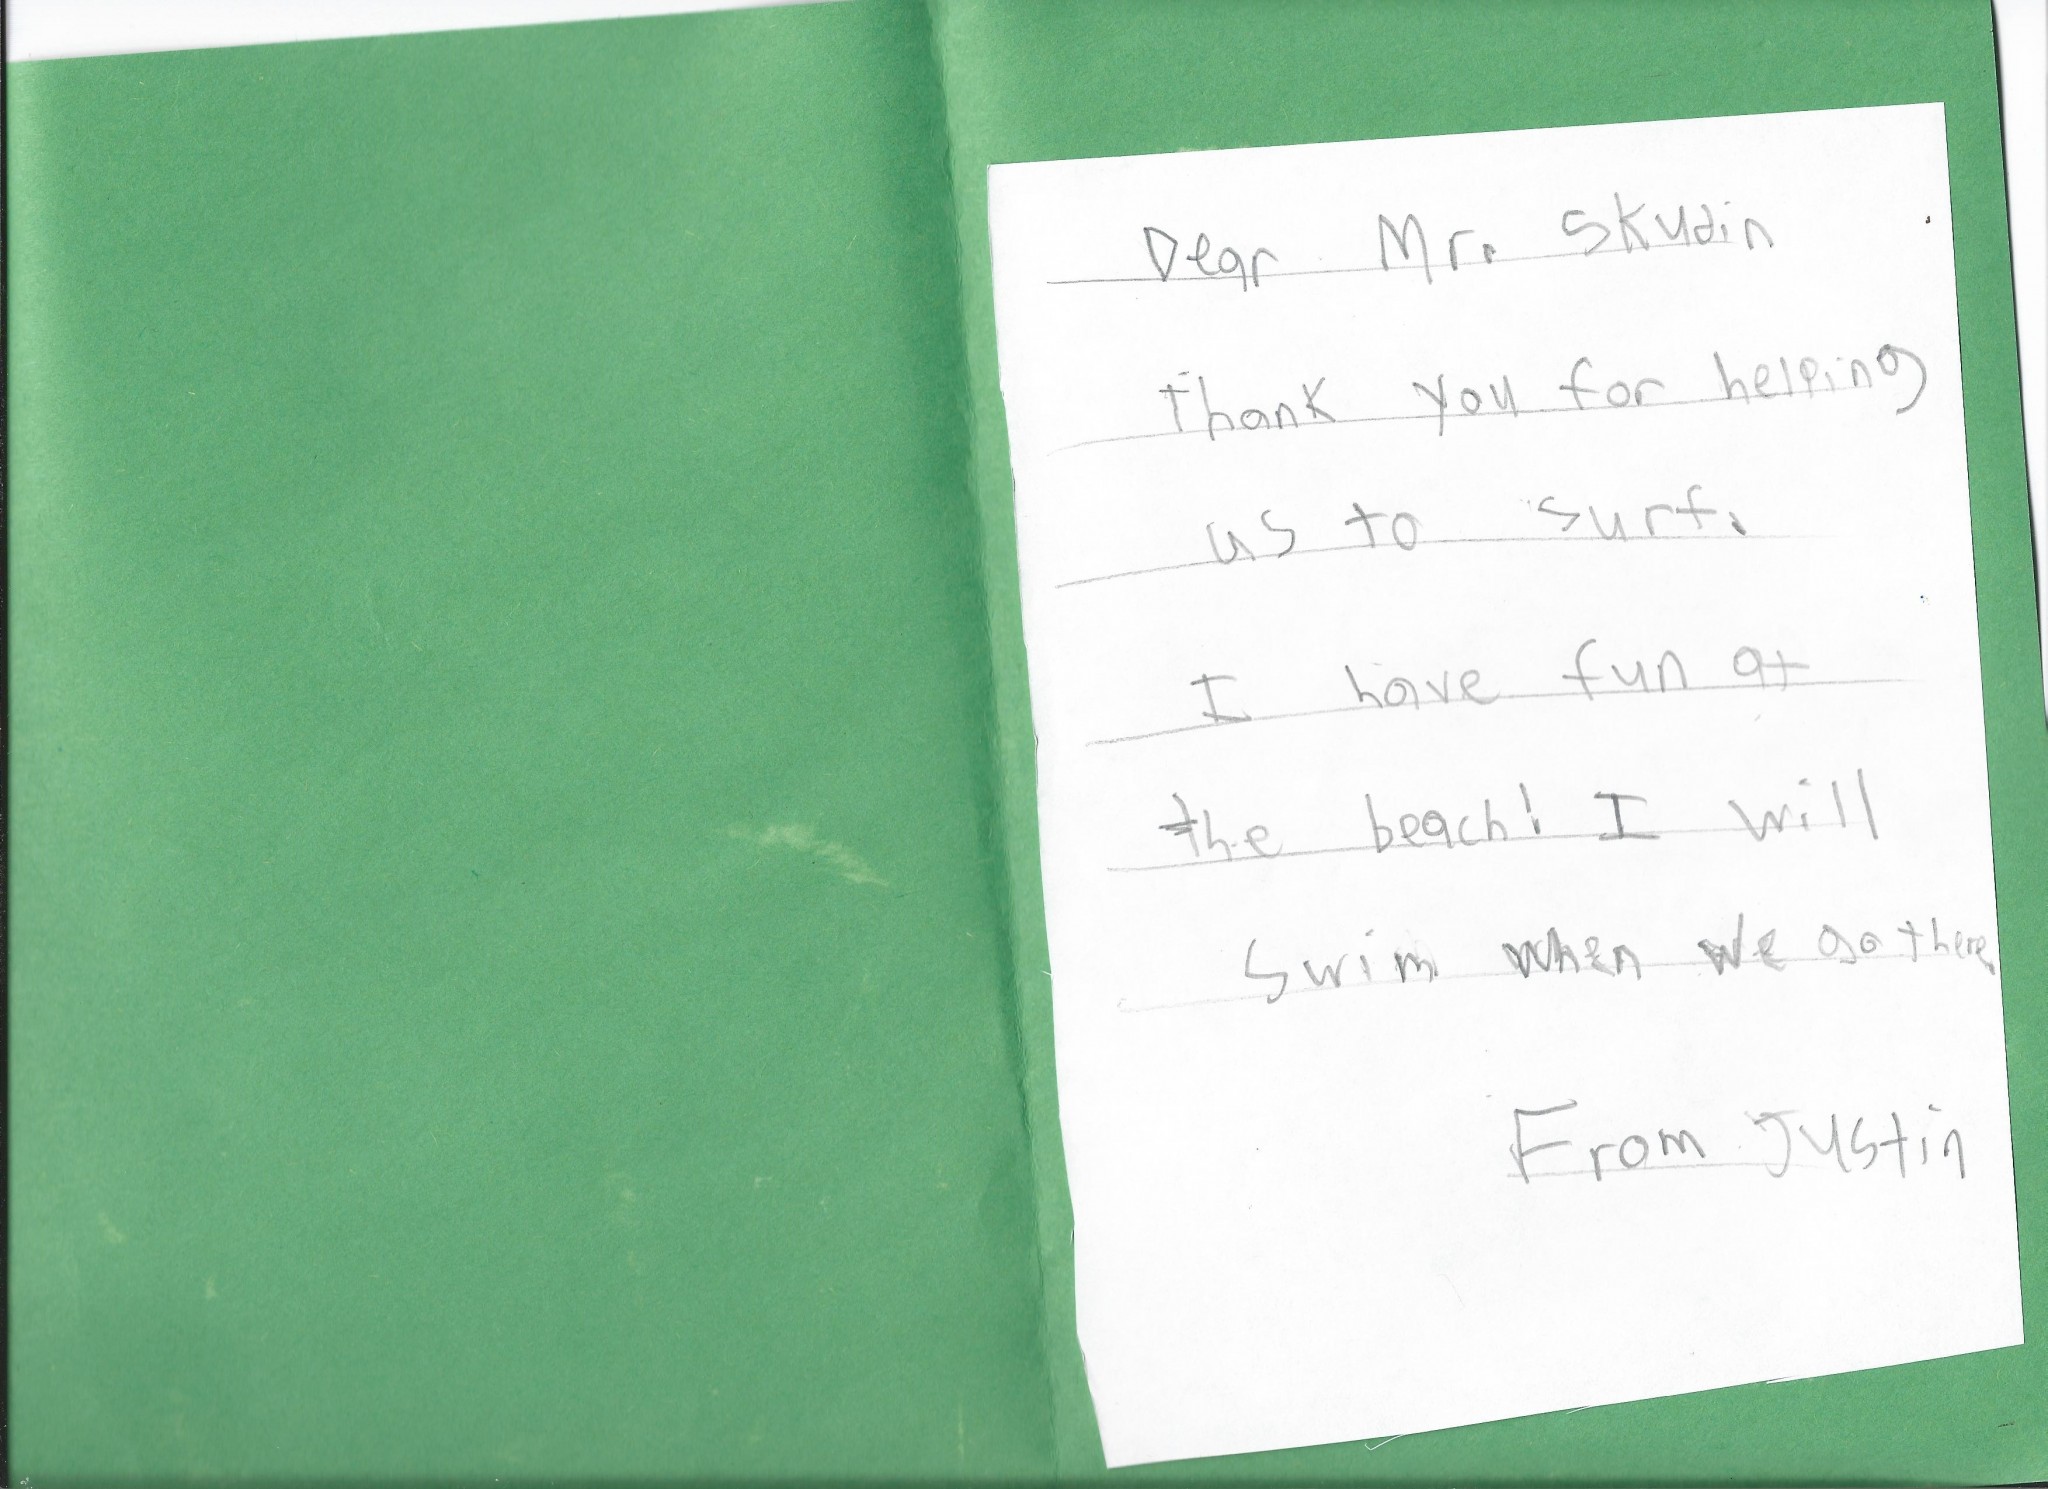 Dear Mr. Skudin
Thank you for helping
us to surf.
I have fun at
the beach! I will
swim when we go there.
From Justin